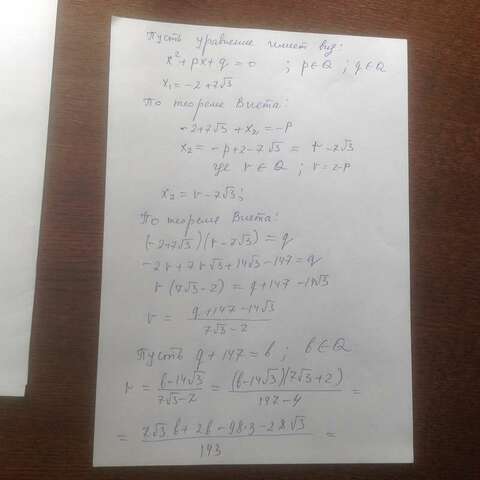 Пусть уравнение имеет вид:
x² + px + q = 0 ; p ∈ Q ; q ∈ Q
x₁ = -2 + 7√3
По теореме Виета:
-2+7√3 + x₂ = -p
x₂ = -p+2-7√3 = r - 7√3
где r ∈ Q ; r = 2-p
x₂ = r - 7√3;
По теореме Виета:
(-2+7√3)(r-7√3) = q
-2r + 7r√3 + 14√3 - 147 = q
r(7√3-2) = q+147 - 14√3
r = (q+147-14√3)/(7√3-2)
Пусть q + 147 = b ; b ∈ Q
r = (b-14√3)/(7√3-2) = (b-14√3)(7√3+2)/(147-4) =
= (7√3b + 2b - 98·3 - 28√3)/143 =